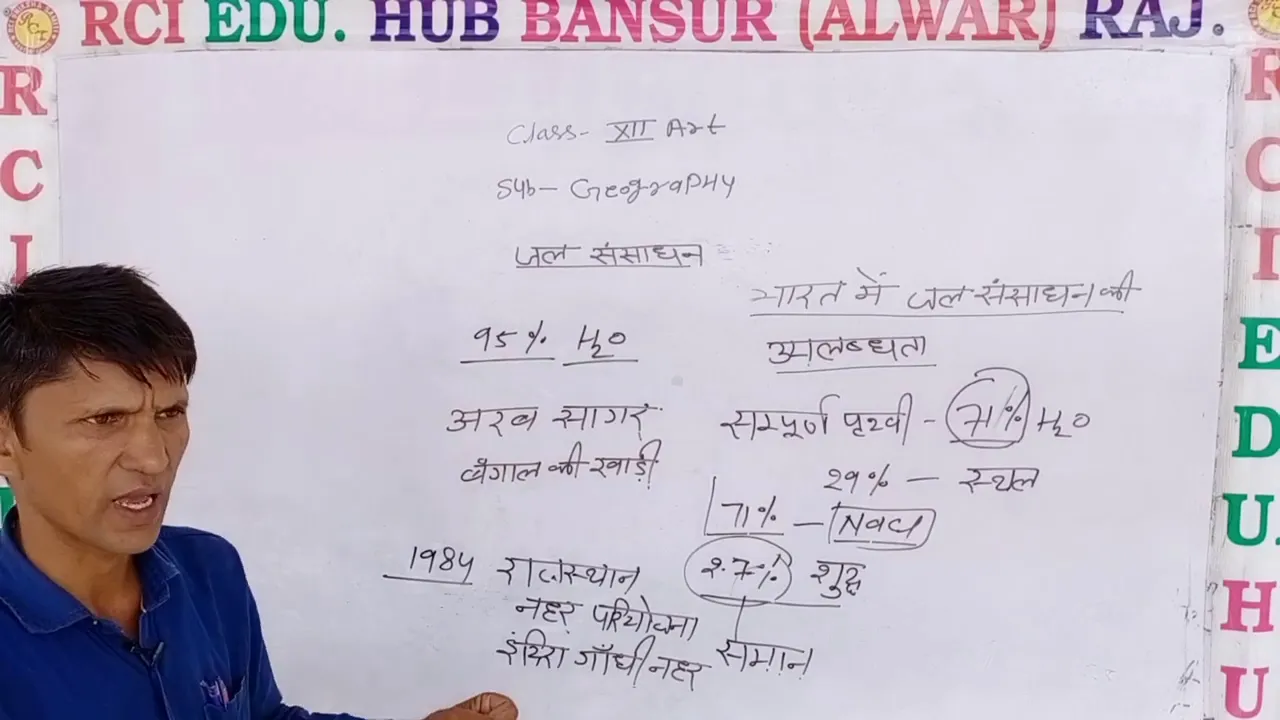 RCI EDU. HUB BANSUR (ALWAR) RAJ.
R
C
I
R
C
I
E
D
U.
H
U
Class- XII Art
Sub- GeograPHy
जल संसाधन
भारत में जल संसाधन की
उपलब्धता
95% H2O
अरब सागर
बंगाल की खाड़ी
सम्पूर्ण पृथ्वी - 71% H2O
29% — स्थल
71% — Nacl
2.7% शुद्ध
समान
1984 राजस्थान
नहर परियोजना
इंदिरा गाँधी नहर